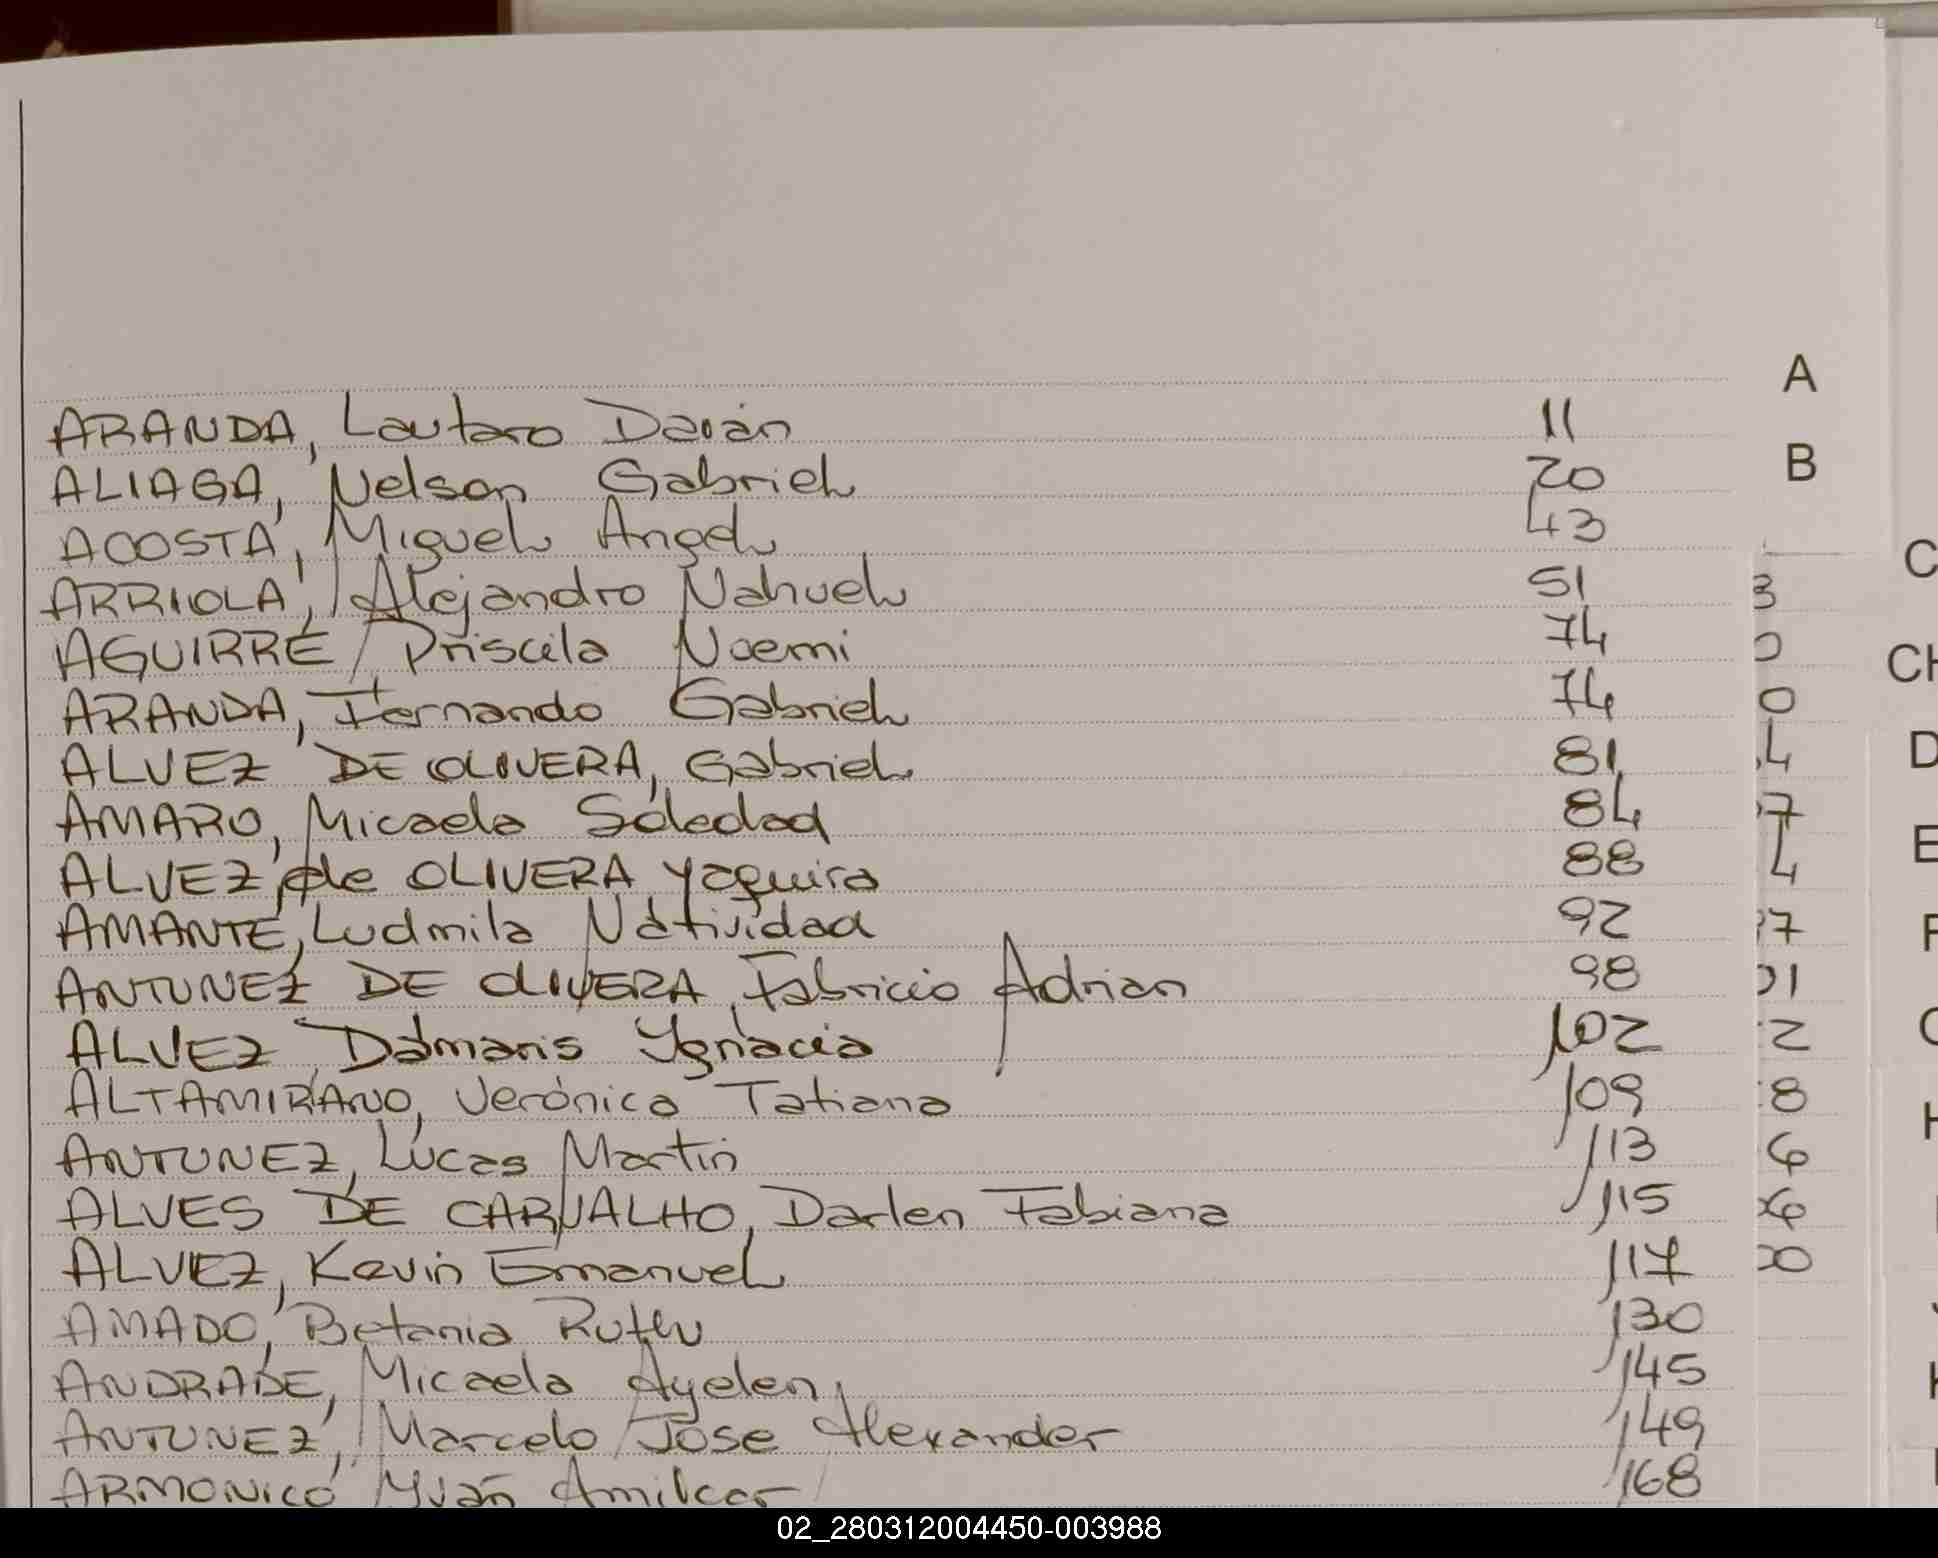 ARANDA, Lautaro Darián 11
ALIAGA, Nelson Gabriel 20
ACOSTA, Miguel Angel 43
ARRIOLA, Alejandro Nahuel 51
AGUIRRE Priscila Noemi 74
ARANDA, Fernando Gabriel 74
ALVEZ DE OLIVERA, Gabriel 81
AMARO, Micaela Soledad 84
ALVEZ, de OLIVERA Yaquira 88
AMANTE, Ludmila Natividad 92
ANTUNEZ DE OLIVERA, Fabricio Adrian 98
ALVEZ Dámaris Ygnacia 102
ALTAMIRANO, Verónica Tatiana 109
ANTUNEZ, Lucas Martin 113
ALVES DE CARVALHO, Darlen Fabiana 115
ALVEZ, Kevin Emanuel 117
AMADO, Betania Ruth 130
ANDRADE, Micaela Ayelen 145
ANTUNEZ, Marcelo Jose Alexander 149
ARMONICO Yván Amilcar 168
A
B
C
CH
D
E
F
H
02_280312004450-003988